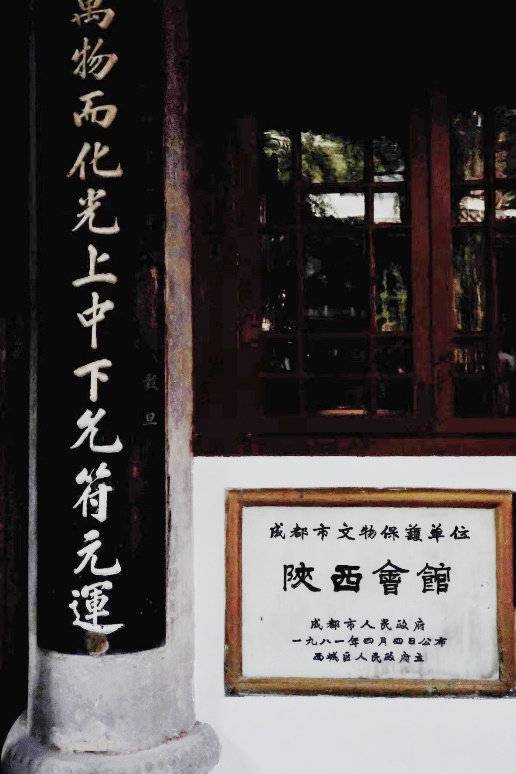 萬物而化光上中下允符元運
穀旦
成都市文物保護单位
陝西會館
成都市人民政府
一九八一年四月四日公布
西城区人民政府立